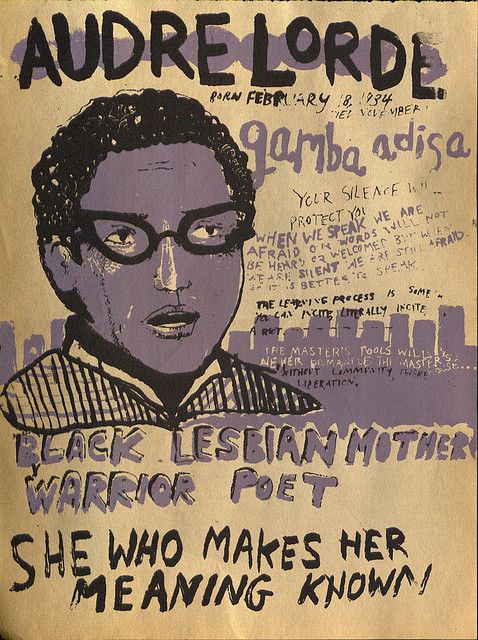 AUDRE LORDE
BORN FEBRUARY 18, 1934
gamba adisa
YOUR SILENCE WILL
PROTECT YOU
WHEN WE SPEAK WE ARE
AFRAID OUR WORDS WILL NOT
BE HEARD OR WELCOMED BUT WHEN
WE ARE SILENT WE ARE STILL AFRAID
SO IT IS BETTER TO SPEAK
THE LEARNING PROCESS IS SOME
YOU CAN INCITE, LITERALLY INCITE
A RIOT.
THE MASTER'S TOOLS WILL
NEVER DISMANTLE THE MASTER'S
WITHOUT COMMUNITY, THERE
LIBERATION.
BLACK LESBIAN MOTHER
WARRIOR POET
SHE WHO MAKES HER
MEANING KNOWN